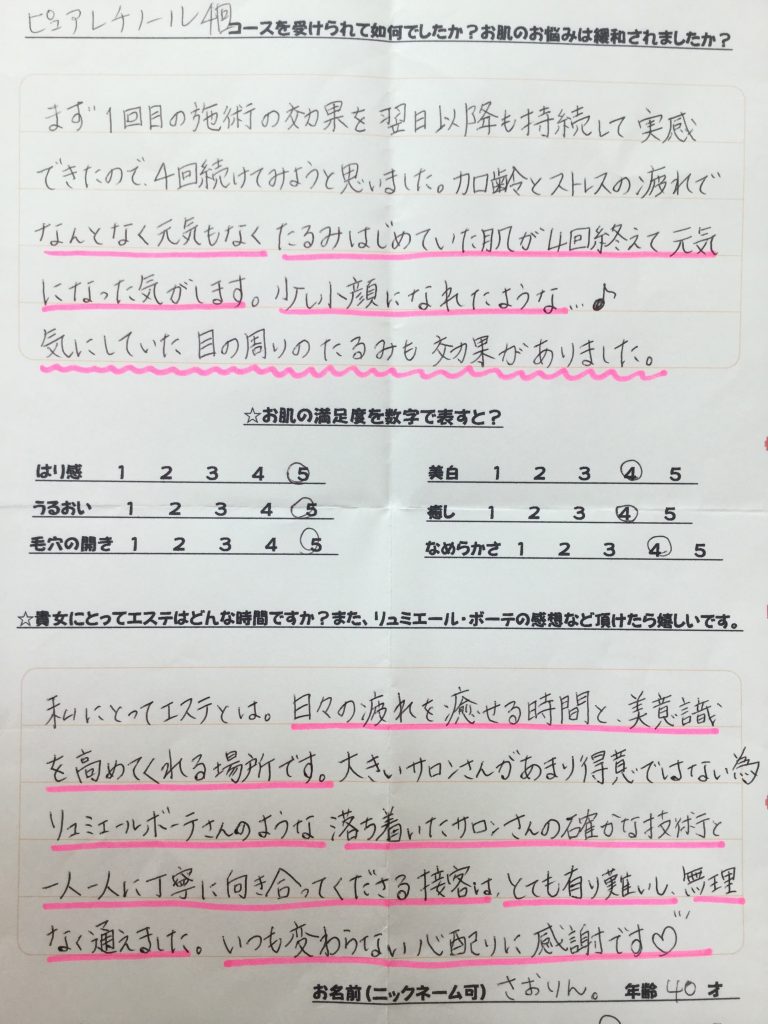 ピュアレチノール4回コースを受けられて如何でしたか？お肌のお悩みは緩和されましたか？
まず1回目の施術の効果を翌日以降も持続して実感
できたので、4回続けてみようと思いました。加齢とストレスの疲れで
なんとなく元気もなくたるみはじめていた肌が4回終えて元気
になった気がします。少し小顔になれたような…♪
気にしていた目の周りのたるみも効果がありました。
☆お肌の満足度を数字で表すと？
はり感 1 2 3 4 5 美白 1 2 3 4 5
うるおい 1 2 3 4 5 癒し 1 2 3 4 5
毛穴の開き 1 2 3 4 5 なめらかさ 1 2 3 4 5
☆貴女にとってエステはどんな時間ですか？また、リュミエール・ボーテの感想など頂けたら嬉しいです。
私にとってエステとは。日々の疲れを癒せる時間と、美意識
を高めてくれる場所です。大きいサロンさんがあまり得意ではない為
リュミエールボーテさんのような落ち着いたサロンさんの確かな技術と
一人一人に丁寧に向き合ってくださる接客は、とても有り難いし、無理
なく通えました。いつも変わらない心配りに感謝です♡
お名前(ニックネーム可) さおりん。 年齢 40 才